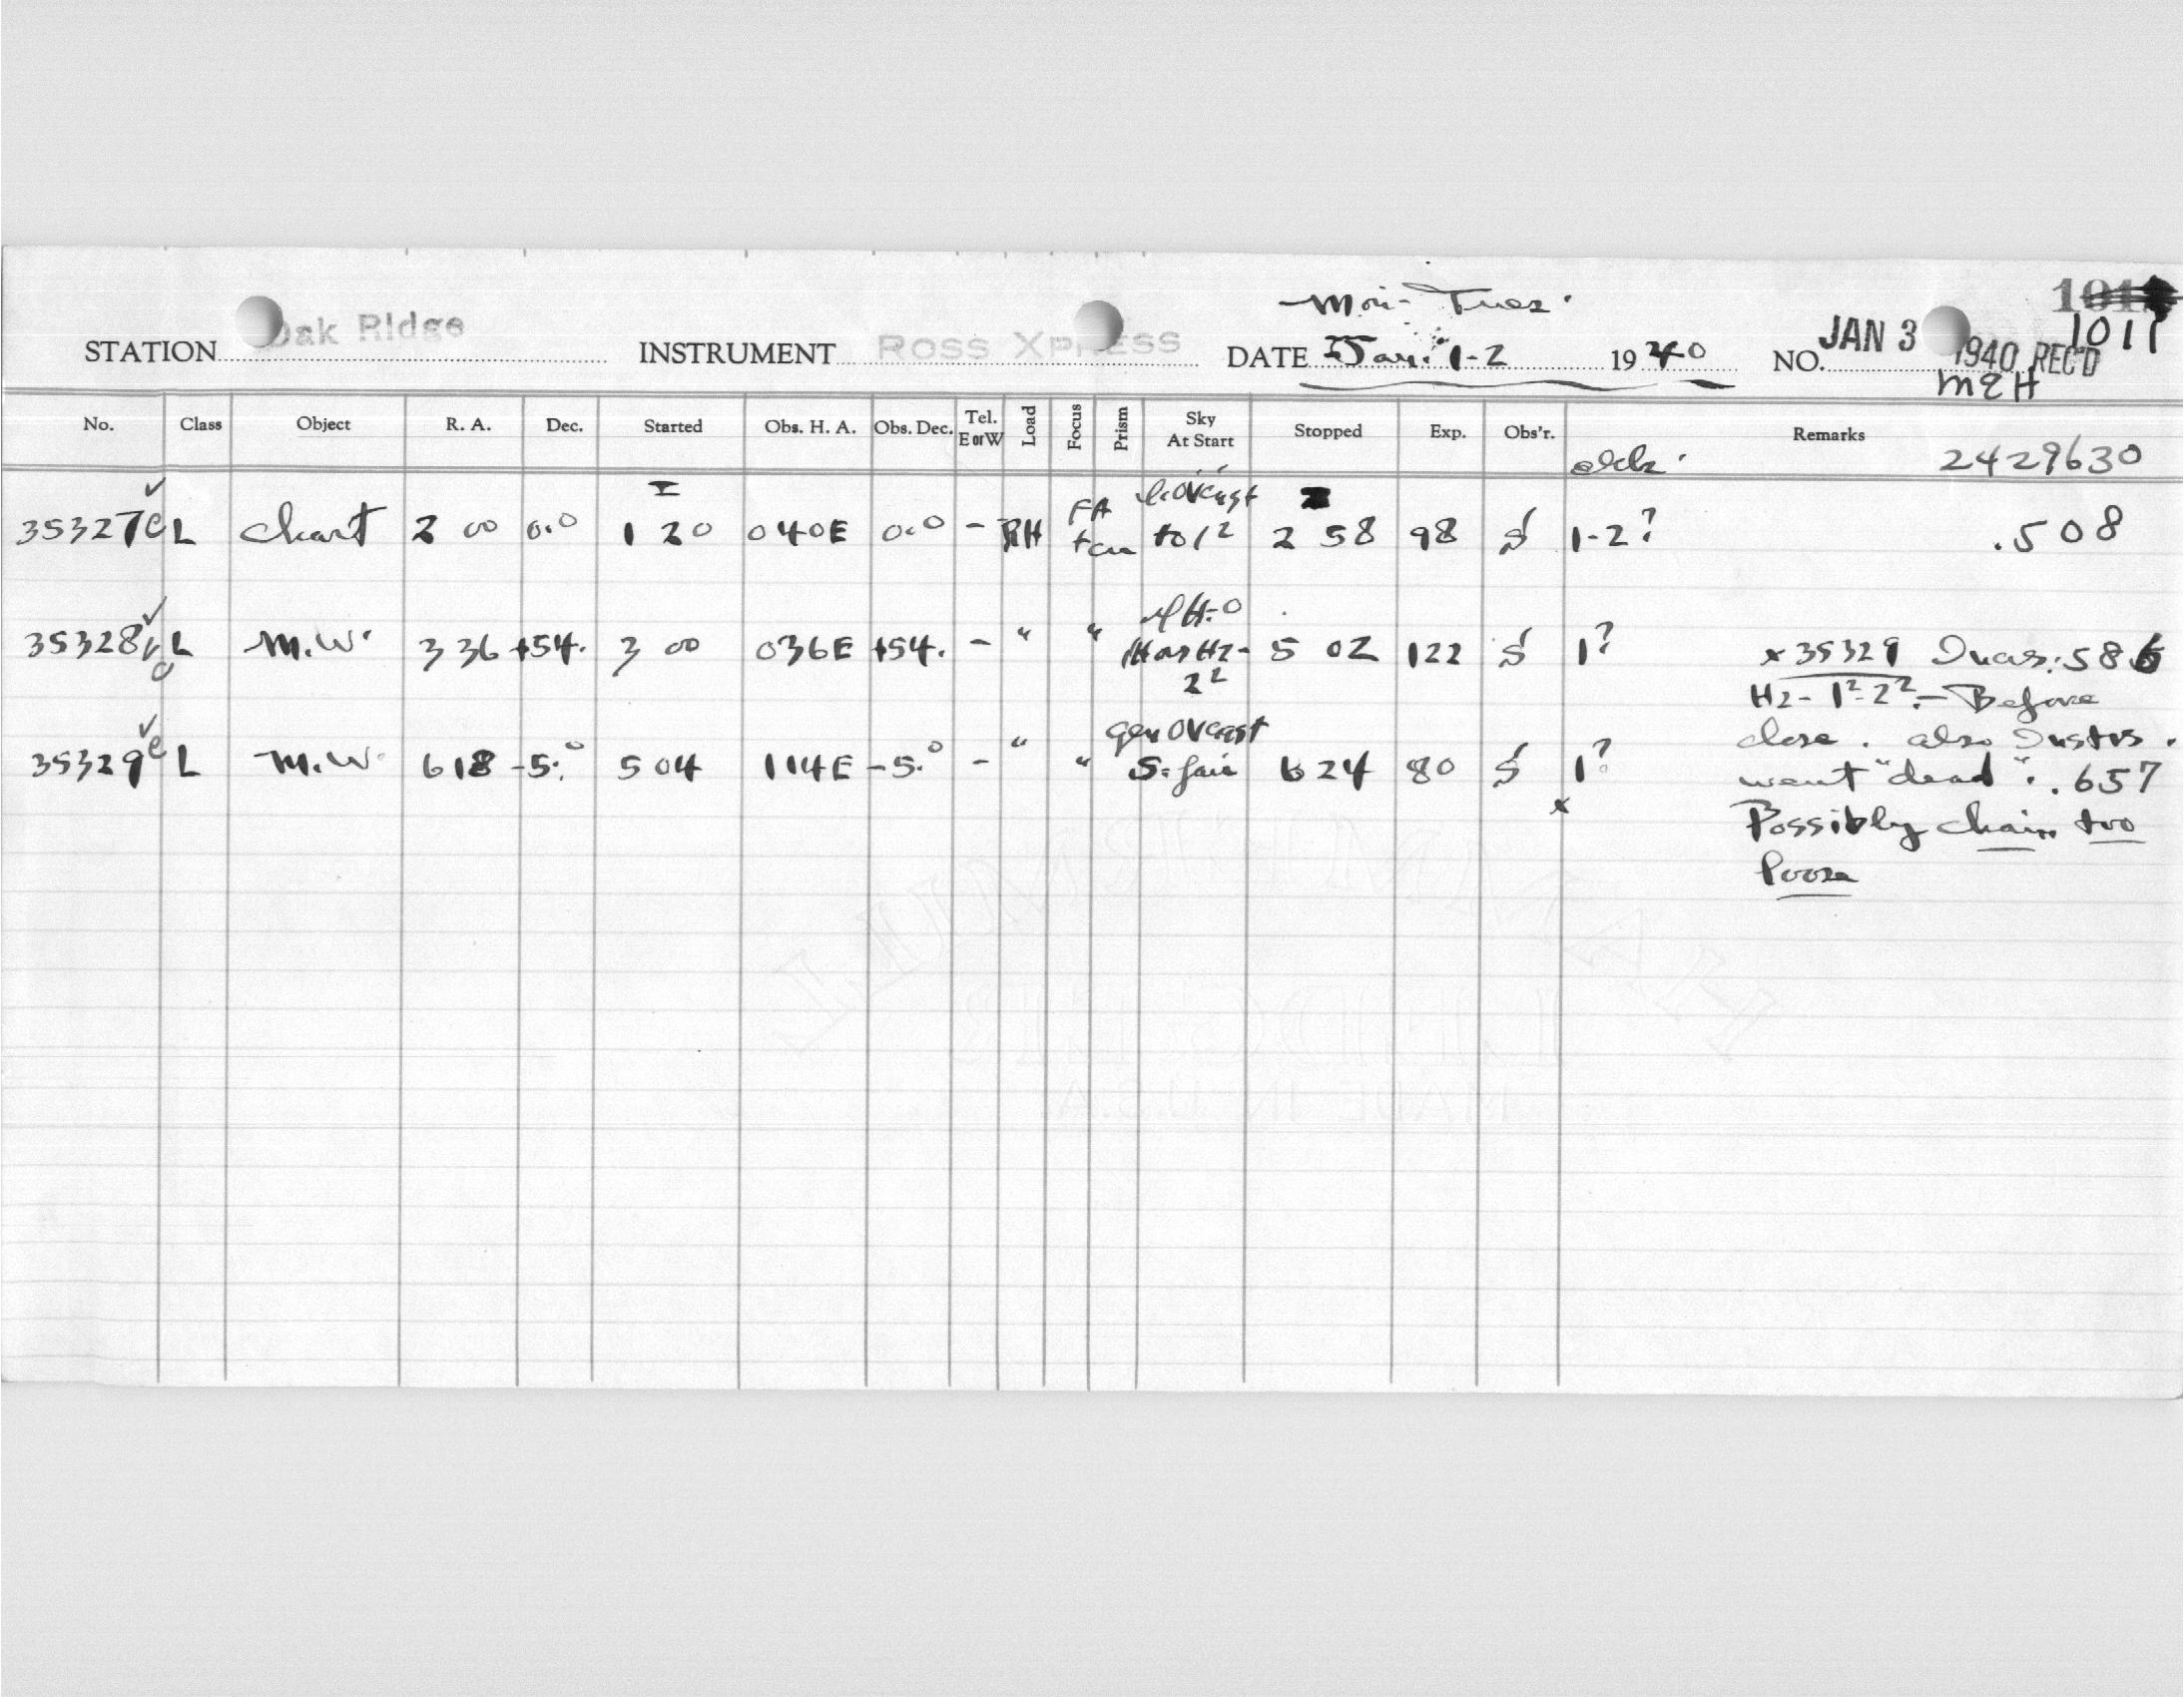 Mon- Tues.
STATION Oak Ridge INSTRUMENT ROSS XPRESS DATE Jan. 1-2 1940 NO. JAN 3 1940 REC'D 1011
MEH
No. Class Object R. A. Dec. Started Obs. H. A. Obs. Dec. Tel. E or W Load Focus Prism Sky At Start Stopped Exp. Obs'r. Remarks
2429630
35327 c L Chart 2 00 0.0 1 20 040E 0.0 - RH FA to 1² 2 58 98 S 1-2? .508
35328 c L M.W. 336 +54. 3 00 036E +54. - " " Hz- 2² 5 02 122 S 1? x 35329 .586
Hz- 1²-2². - Before
35329 c L M.W. 618 -5.° 504 114E -5.° - " " Gen Ovcast S. fair 624 80 S 1? x close. also
went "dead". .657
Possibly chain too
Poor
MADE IN U.S.A.